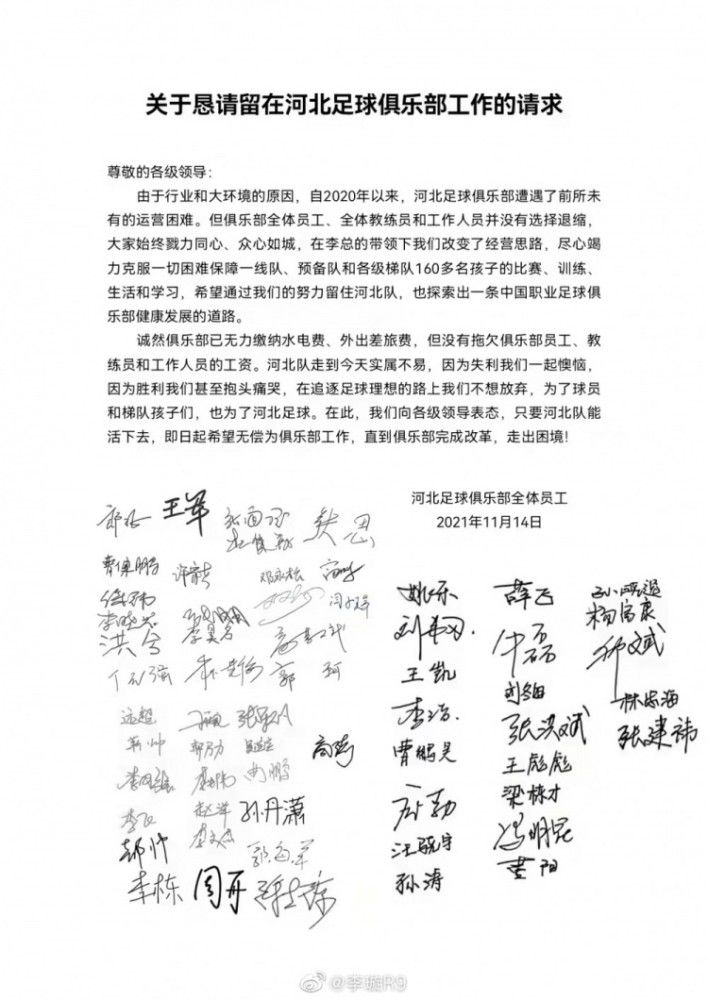 关于恳请留在河北足球俱乐部工作的请求
尊敬的各级领导：
由于行业和大环境的原因，自2020年以来，河北足球俱乐部遭遇了前所未
有的运营困难。但俱乐部全体员工、全体教练员和工作人员并没有选择退缩，
大家始终戮力同心、众心如城，在李总的带领下我们改变了经营思路，尽心竭
力克服一切困难保障一线队、预备队和各级梯队160多名孩子的比赛、训练、
生活和学习，希望通过我们的努力留住河北队，也探索出一条中国职业足球俱
乐部健康发展的道路。
诚然俱乐部已无力缴纳水电费、外出差旅费，但没有拖欠俱乐部员工、教
练员和工作人员的工资。河北队走到今天实属不易，因为失利我们一起懊恼，
因为胜利我们甚至抱头痛哭，在追逐足球理想的路上我们不想放弃，为了球员
和梯队孩子们，也为了河北足球。在此，我们向各级领导表态，只要河北队能
活下去，即日起希望无偿为俱乐部工作，直到俱乐部完成改革，走出困境！
河北足球俱乐部全体员工
2021年11月14日
王军
姚乐
薛飞
杨富康
王凯
李浩
张洪斌
林忠海
张建祎
曹鹏昊
王彪彪
高勃
梁栋才
汪晓宇
冯明昆
孙涛
黄阳
远超
孙丹潇
郝帅
李栋
周开
@李璇R9